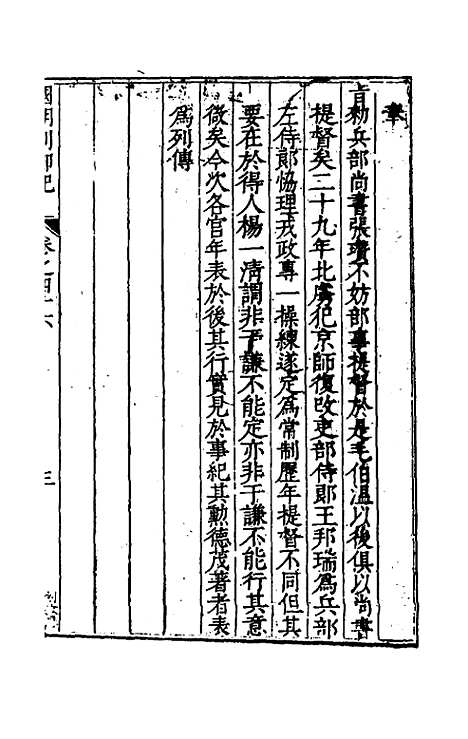 奉
旨勑兵部尚書張瓚不妨部事提督於是毛伯溫以後俱以尚書
提督矣二十九年北虜犯京師復改吏部侍郎王邦瑞爲兵部
左侍郎恊理戎政專一操練遂定爲常制歷年提督不同但其
要在於得人楊一清謂非于謙不能定亦非于謙不能行其意
微矣今次各官年表於後其行實見於事紀其勲德茂著者表
爲列傳
國朝列卿紀
卷之四十六
三